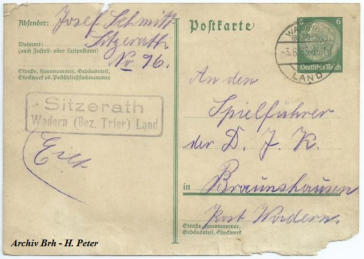 Absender: Josef Schmitt
Wohnort: Sitzerath
(auch Zustell- oder Leitpostamt)
Nr 96.
Straße, Hausnummer, Gebäudeteil,
Stockwerk od. Postschließfachnummer
Sitzerath
Wadern (Bez. Trier) Land
Eilt
Postkarte
6
Deutsches Reich
LAND
An den
Spielführer
der D. J. K.
in Braunshausen
Post Wadern.
Straße, Hausnummer,
Gebäudeteil, Stockwerk
Archiv Brh - H. Peter